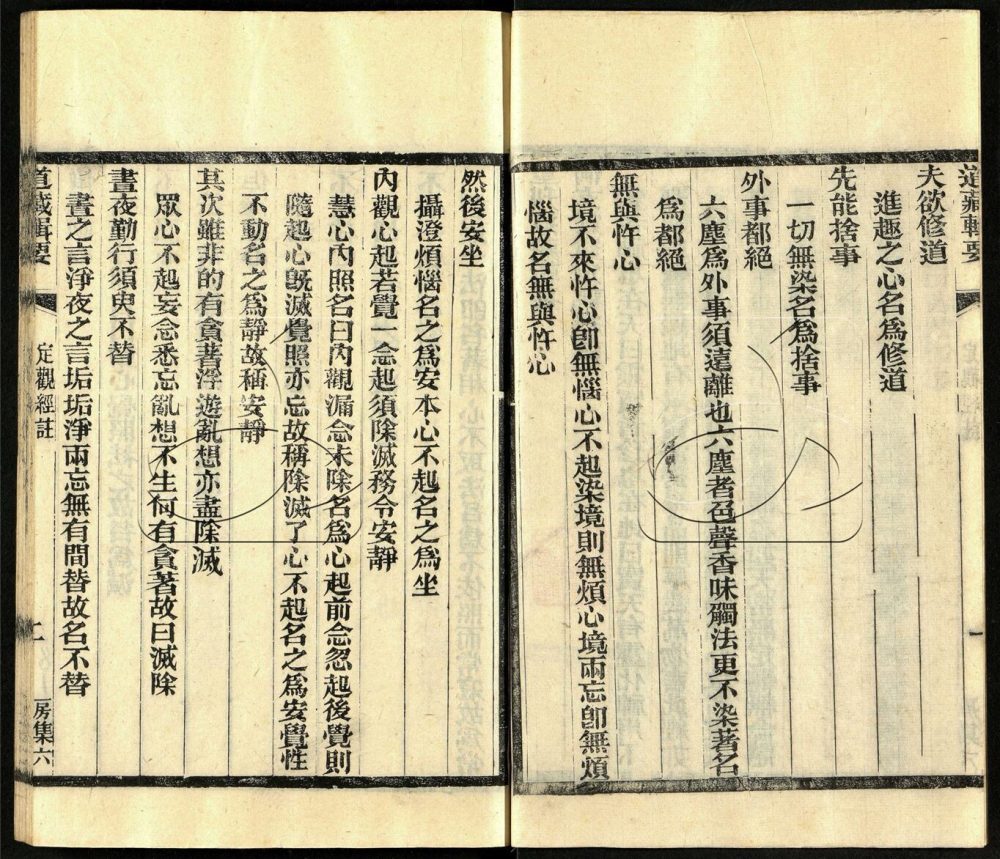 道藏輯要
夫欲修道
進趣之心名爲修道
先能捨事
一切無染名爲捨事
外事都絕
六塵爲外事須遠離也六塵者色聲香味觸法更不染著名
爲都絕
無與忤心
境不來忤心卽無惱心不起染境則無煩心境兩忘卽無煩
惱故名無與忤心
然後安坐
攝澄煩惱名之爲安本心不起名之爲坐
內觀心起若覺一念起須除滅務令安靜
慧心內照名曰內觀漏念未除名爲心起前念忽起後覺則
隨起心旣滅覺照亦忘故稱除滅了心不起名之爲安覺性
不動名之爲靜故稱安靜
其次雖非的有貪著浮遊亂想亦盡除滅
眾心不起妄念悉忘亂想不生何有貪著故曰滅除
晝夜勤行須臾不替
晝之言淨夜之言垢垢淨兩忘無有間替故名不替
道藏輯要
定觀經註
二
房集六